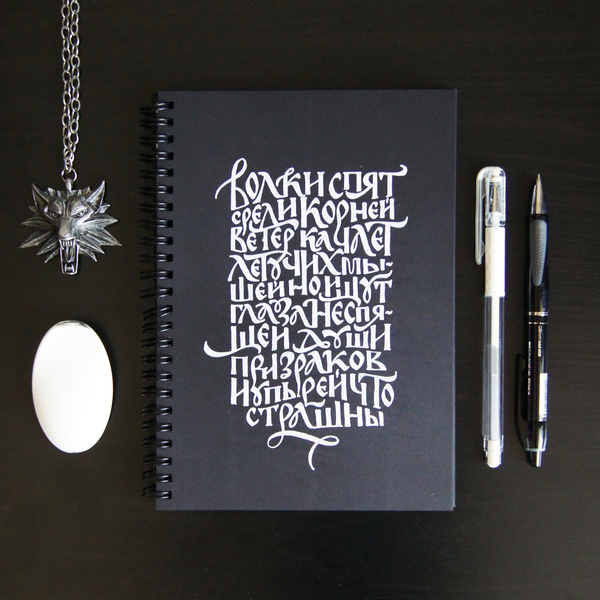 волки спят
среди корней
ветер качает
летучих мы-
шей но ищут
глаза неспя-
щей души
призраков
и упырей что
страшны